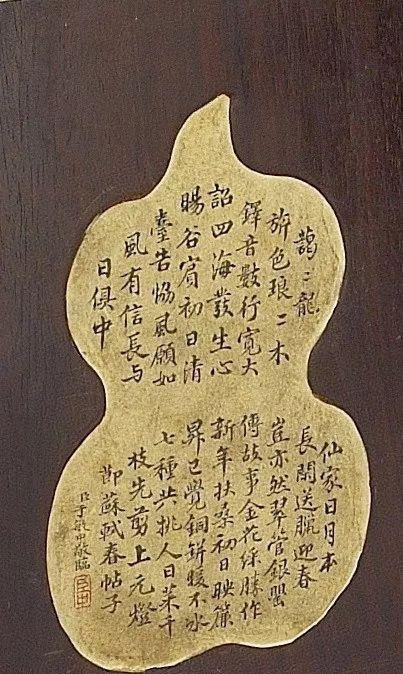 藹〻龍
旂色琅〻木
鐸音數行寬大
詔四海發生心
暘谷賓初日清
臺告協風願如
風有信長與
日俱中
仙家日月本
長閒送臘迎春
豈亦然翠管銀罌
傳故事金花綵勝作
新年扶桑初日映簾
昇已覺銅缾暖不冰
七種共挑人日菜千
枝先剪上元燈
節蘇軾春帖子
臣于敏中敬臨